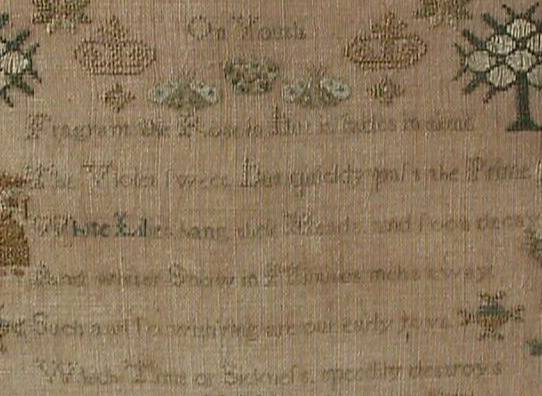 On Youth
Fragrant the Rose is But it fades in time
The Violet sweet But quickly past the Prime
White Lilies hang their Heads and soon decay
And whiter Snow in Minutes melts away
Such and so withring are our early Joys
Which Time or Sickness speedily destroys